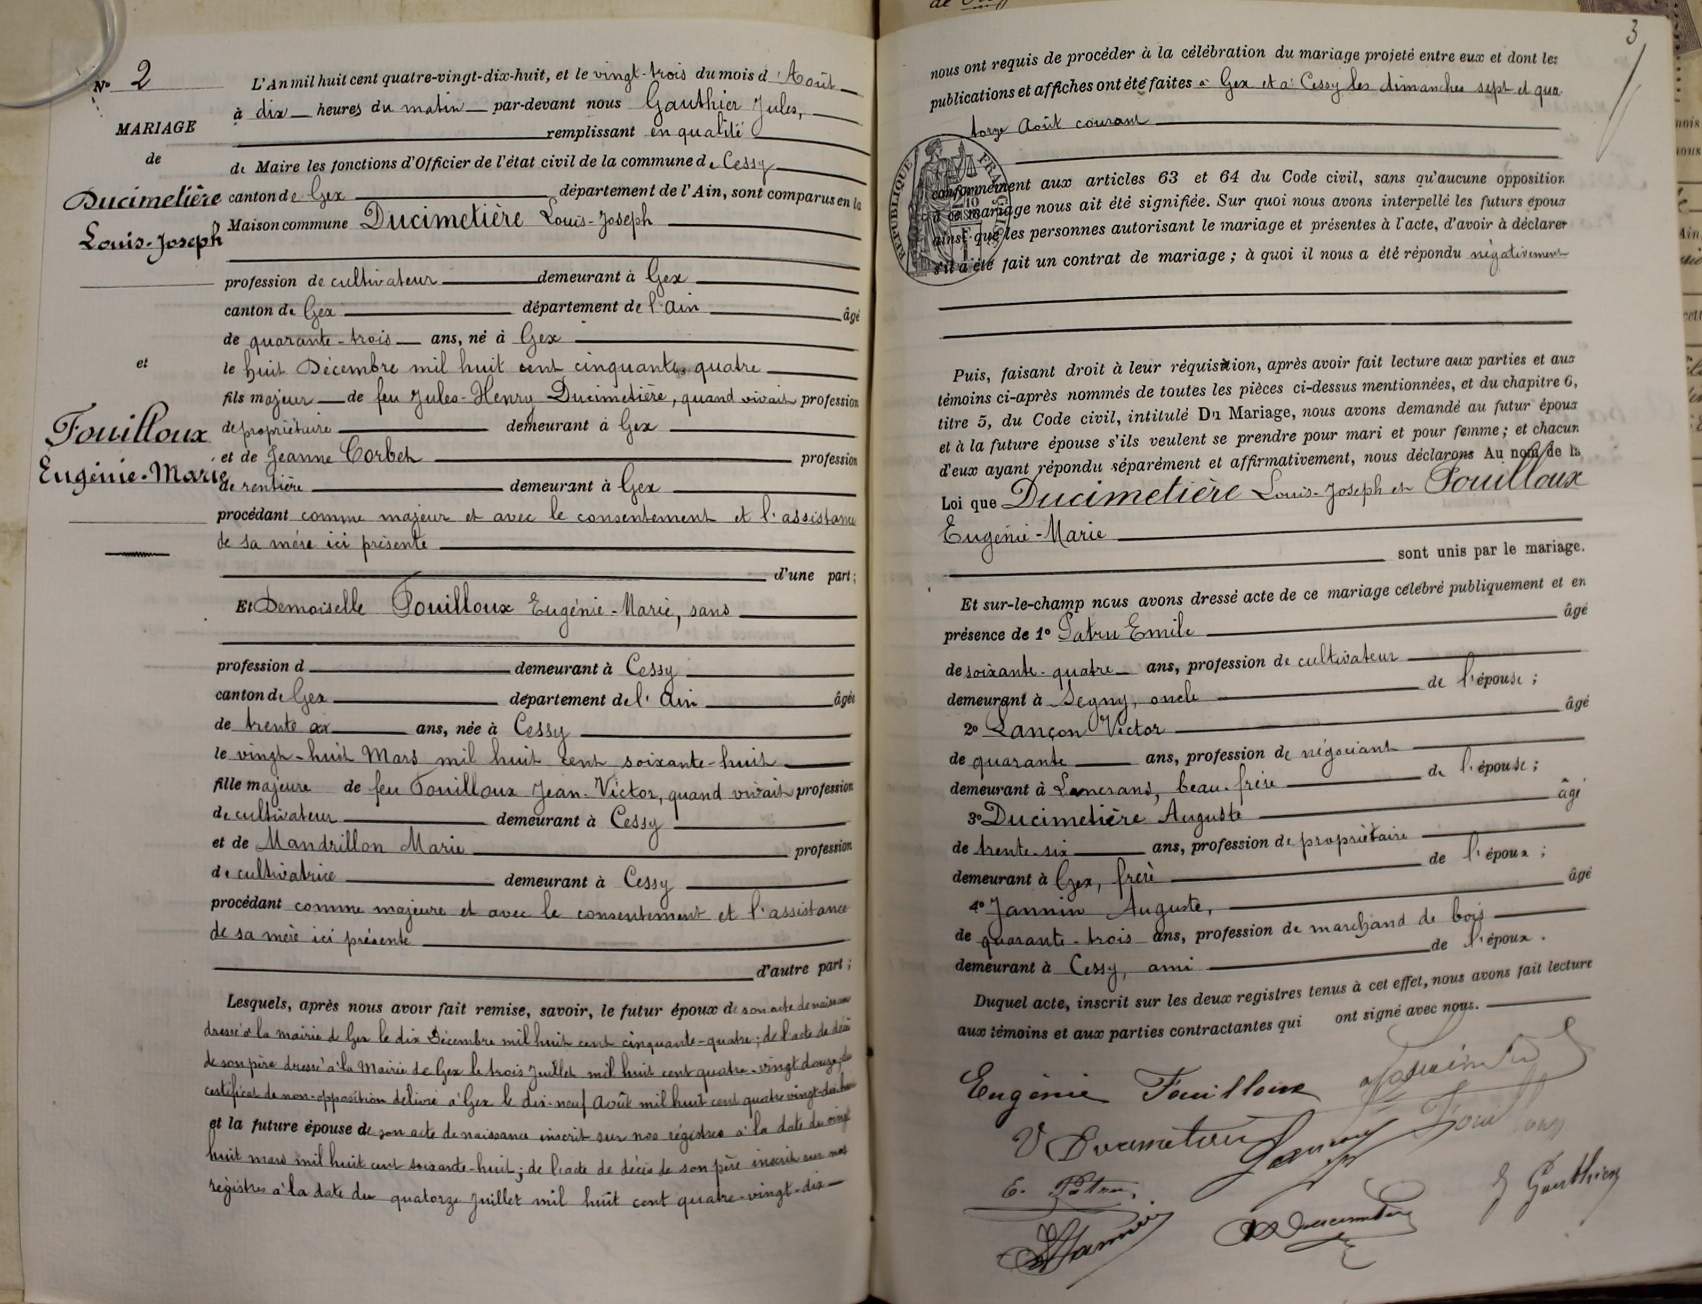 N° 2
MARIAGE
de
Ducimetière
Louis-Joseph
et
Fouilloux
Eugénie-Marie
L'An mil huit cent quatre-vingt-dix-huit, et le vingt-trois du mois d'Août
à dix heures du matin par-devant nous Gauthier Jules,
remplissant en qualité
de Maire les fonctions d'Officier de l'état civil de la commune de Cessy
canton de Gex département de l'Ain, sont comparus en la
Maison commune Ducimetière Louis-Joseph
profession de cultivateur demeurant à Gex
canton de Gex département de l'Ain âgé
de quarante-trois ans, né à Gex
le huit Décembre mil huit cent cinquante quatre
fils majeur de feu Jules-Henry Ducimetière, quand vivait profession
de propriétaire demeurant à Gex
et de Jeanne Corbet profession
de rentière demeurant à Gex
procédant comme majeur et avec le consentement et l'assistance
de sa mère ici présente
d'une part;
Et Demoiselle Fouilloux Eugénie-Marie, sans
profession d demeurant à Cessy
canton de Gex département de l'Ain âgée
de trente ans, née à Cessy
le vingt-huit Mars mil huit cent soixante-huit
fille majeure de feu Fouilloux Jean-Victor, quand vivait profession
de cultivateur demeurant à Cessy
et de Mandrillon Marie profession
de cultivatrice demeurant à Cessy
procédant comme majeure et avec le consentement et l'assistance
de sa mère ici présente
d'autre part;
Lesquels, après nous avoir fait remise, savoir, le futur époux de son acte de naissance
dressé à la mairie de Gex le dix Décembre mil huit cent cinquante-quatre; de l'acte de décès
de son père dressé à la Mairie de Gex le trois Juillet mil huit cent quatre-vingt douze, du
certificat de non-opposition délivré à Gex le dix-neuf Août mil huit cent quatre vingt-dix-huit
et la future épouse de son acte de naissance inscrit sur nos régistres à la date du vingt
huit mars mil huit cent soixante-huit; de l'acte de décès de son père inscrit sur nos
registres à la date du quatorze Juillet mil huit cent quatre-vingt-dix
3
nous ont requis de procéder à la célébration du mariage projeté entre eux et dont les
publications et affiches ont été faites à Gex et à Cessy les dimanches sept et qua
torze Août courant
RÉPUBLIQUE FRANÇAISE
conformément aux articles 63 et 64 du Code civil, sans qu'aucune opposition
à ce mariage nous ait été signifiée. Sur quoi nous avons interpellé les futurs époux
ainsi que les personnes autorisant le mariage et présentes à l'acte, d'avoir à déclarer
s'il a été fait un contrat de mariage; à quoi il nous a été répondu négativement
Puis, faisant droit à leur réquisition, après avoir fait lecture aux parties et aux
témoins ci-après nommés de toutes les pièces ci-dessus mentionnées, et du chapitre 6,
titre 5, du Code civil, intitulé Du Mariage, nous avons demandé au futur époux
et à la future épouse s'ils veulent se prendre pour mari et pour femme; et chacun
d'eux ayant répondu séparément et affirmativement, nous déclarons Au nom de la
Loi que Ducimetière Louis-Joseph et Fouilloux
Eugénie-Marie
sont unis par le mariage.
Et sur-le-champ nous avons dressé acte de ce mariage célébré publiquement et en
présence de 1° Patru Emile âgé
de soixante-quatre ans, profession de cultivateur
demeurant à Segny, oncle de l'épouse;
2° Lançon Victor âgé
de quarante ans, profession de négociant
demeurant à Lancrans, beau-frère de l'épouse;
3° Ducimetière Auguste âgé
de trente-six ans, profession de propriétaire
demeurant à Gex, frère de l'époux;
4° Jannin Auguste, âgé
de quarante-trois ans, profession de marchand de bois
demeurant à Cessy, ami de l'époux.
Duquel acte, inscrit sur les deux registres tenus à cet effet, nous avons fait lecture
aux témoins et aux parties contractantes qui ont signé avec nous.
Eugénie Fouilloux
V Ducimetière
E. Patru
J Gauthier